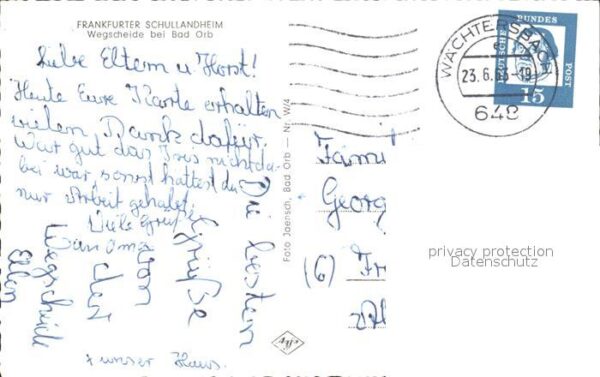 FRANKFURTER SCHULLANDHEIM
Wegscheide bei Bad Orb
Liebe Eltern u. Horst!
Heute Eure Karte erhalten
vielen Dank dafür.
War gut das nicht da-
bei war, sonst hättest du
nur Arbeit gehabt.
Viele Grüße
Die besten
Grüße
von
der
Wegscheide
x unser Haus.
Foto Jaensch, Bad Orb — Nr. W/4
WÄCHTERSBACH
23.6.63-19
648
DEUTSCHE
BUNDES
POST
15
Fami
Georg
(6) Fr
privacy protection
Datenschutz